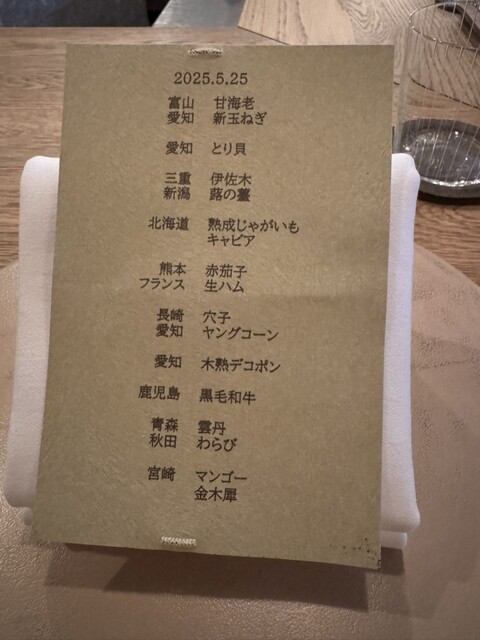 2025.5.25
富山 甘海老
愛知 新玉ねぎ
愛知 とり貝
三重 伊佐木
新潟 蕗の薹
北海道 熟成じゃがいも
キャビア
熊本 赤茄子
フランス 生ハム
長崎 穴子
愛知 ヤングコーン
愛知 木熟デコポン
鹿児島 黒毛和牛
青森 雲丹
秋田 わらび
宮崎 マンゴー
金木犀